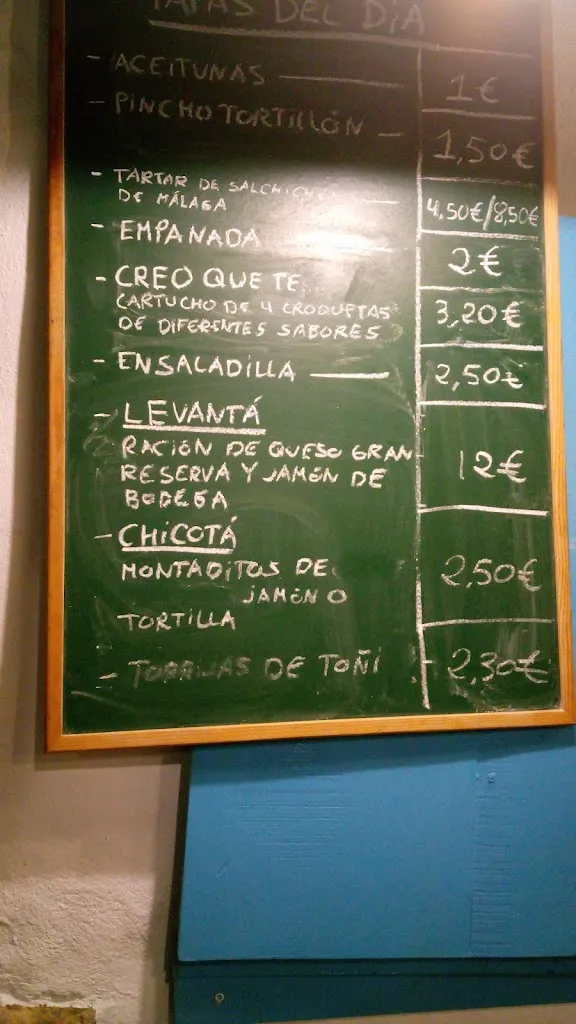 TAPAS DEL DíA
- ACEITUNAS — 1€
- PINCHO TORTILLÓN — 1,50€
- TARTAR DE
DE MÁLAGA — 4,50€/8,50€
- EMPANADA — 2€
- CREO QUE TE...
CARTUCHO DE 4 CROQUETAS
DE DIFERENTES SABORES 3,20€
- ENSALADILLA — 2,50€
- LEVANTÁ
RACIÓN DE QUESO GRAN
RESERVA Y JAMÓN DE
BODEGA 12€
- CHICOTÁ
MONTADITOS DE
JAMÓN O
TORTILLA 2,50€
- TORRIJAS DE TOÑI 2,30€